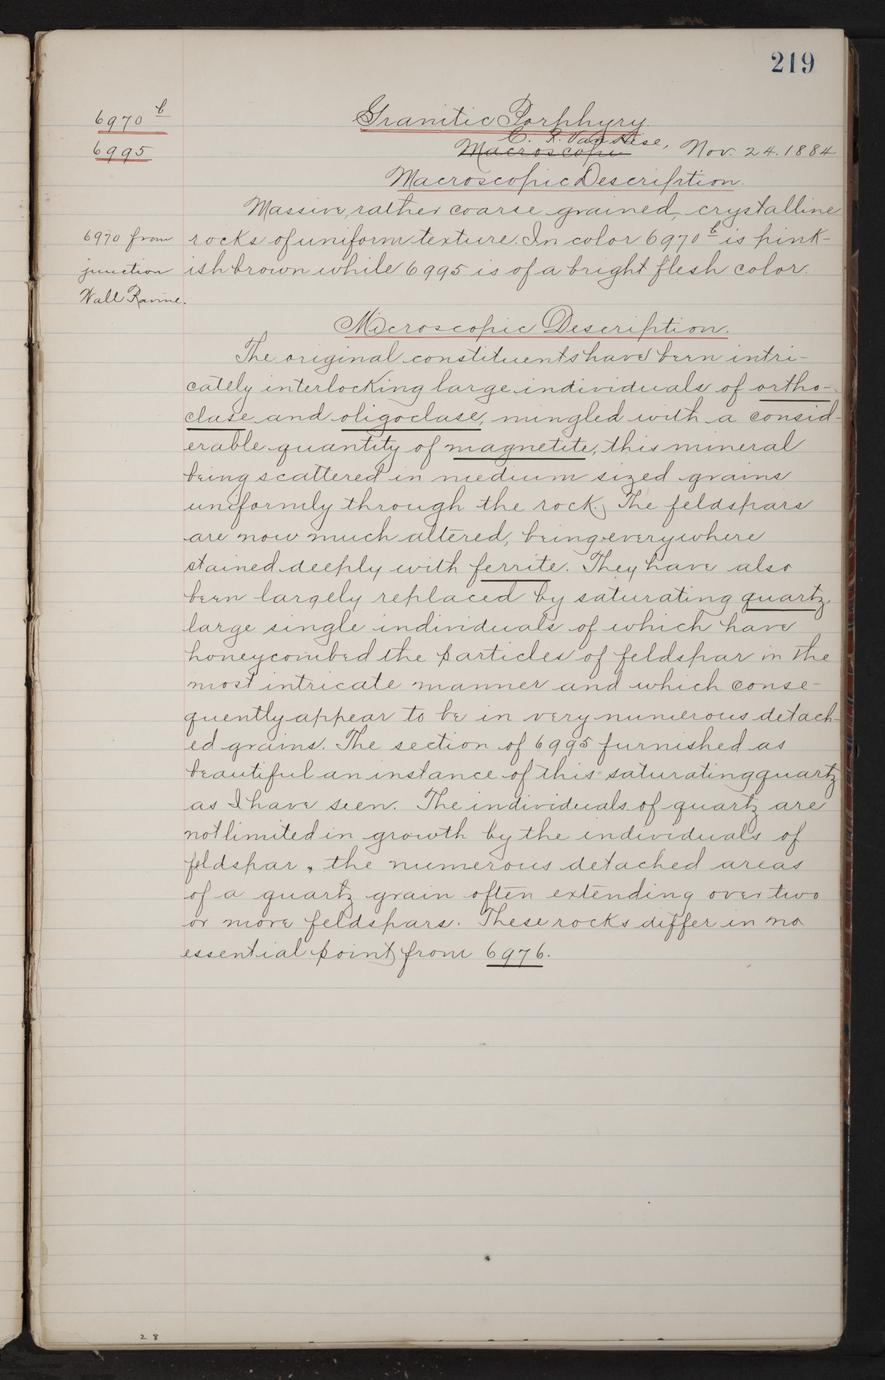 219
6970 b
6995
Granitic Porphyry.
C. R. Van Hise, Nov. 24. 1884
Macroscopic
Macroscopic Description.
Massive, rather coarse grained, crystalline
6970 from
junction
Wall Ravine.
rocks of uniform texture. In color 6970 b is pink-
ish brown while 6995 is of a bright flesh color.
Microscopic Description.
The original constituents have been intri-
cately interlocking large individuals of ortho-
clase and oligoclase, mingled with a consid-
erable quantity of magnetite, this mineral
being scattered in medium sized grains
uniformly through the rock. The feldspars
are now much altered, being everywhere
stained deeply with ferrite. They have also
been largely replaced by saturating quartz,
large single individuals of which have
honeycombed the particles of feldspar in the
most intricate manner and which conse-
quently appear to be in very numerous detach-
ed grains. The section of 6995 furnished as
beautiful an instance of this saturating quartz
as I have seen. The individuals of quartz are
not limited in growth by the individuals of
feldspar, the numerous detached areas
of a quartz grain often extending over two
or more feldspars. These rocks differ in no
essential point from 6976.
28